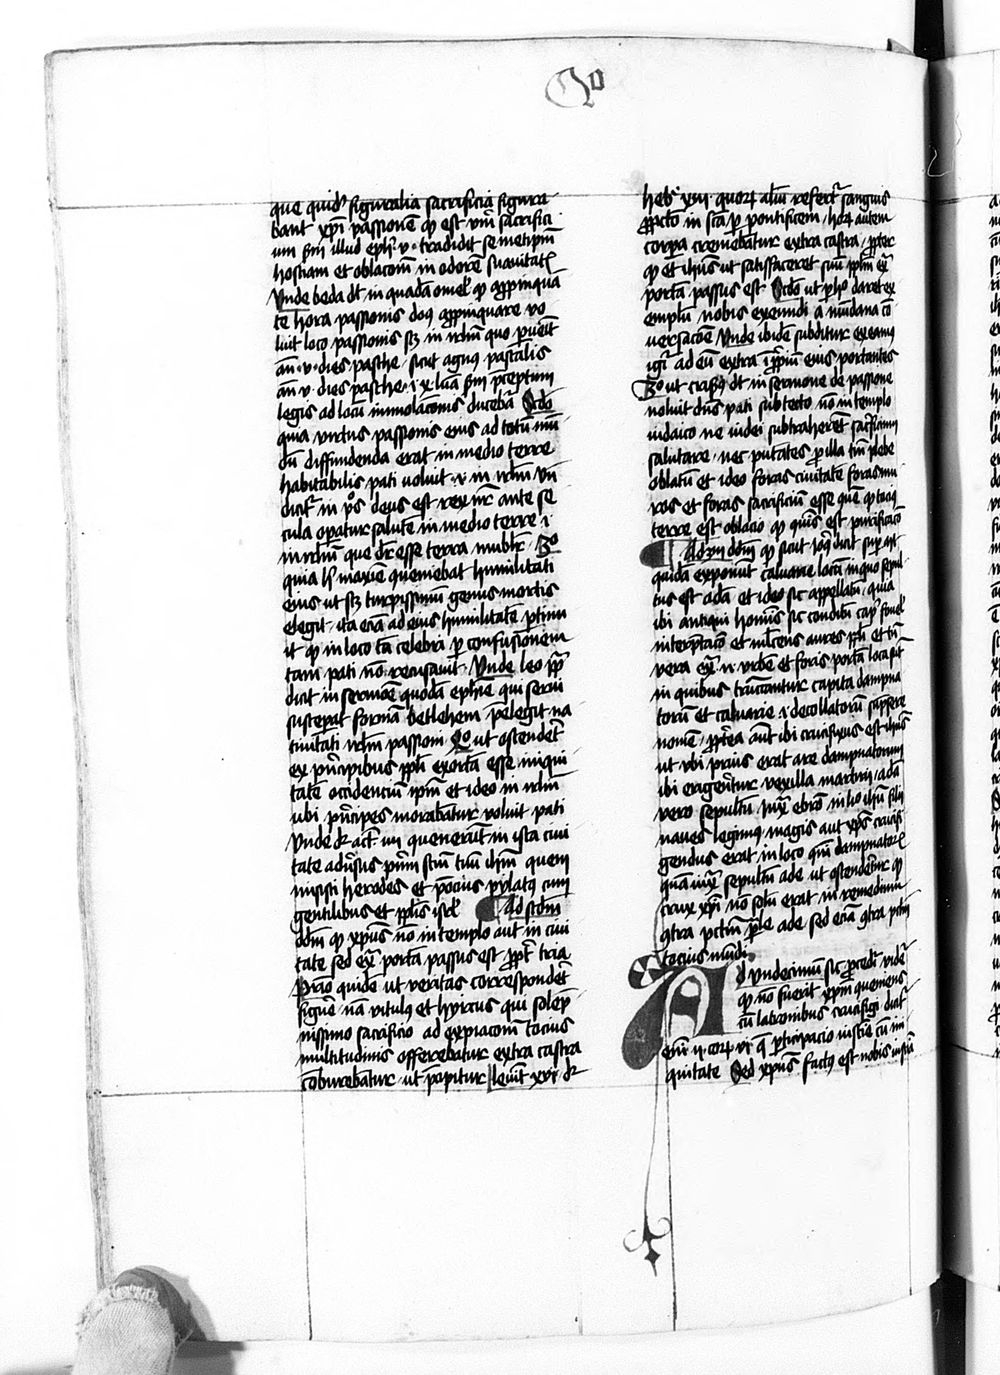 Qo
que quidē figuralia sacrificia figura
bant xpi passionē q̄ est vm̄ sacrifici
um scdm illud eph̄ v · tradidit semetipm̄
hostiam et oblacōm in odorē suauitatꝭ
Vnde beda dt̄ in quadā omel' q̄ appinqua
te hora passionis dn̄s appinquare vo
luit loco passionis scꝫ in irl̄m quo puēit
an̄ · v · dies pasche sicut agnus pascalis
an̄ v · dies pasche · i · x · luā scdm p̄ceptum
legis ad locū immolacōnis ducebāt Scdo
quia virtus passionis eius ad totū mū
dū diffundenda erat in medio terre
habitabilis pati voluit · i · in irl̄m Vn̄
dicit̄ in ps̄ deus est rex nr̄ ante se
cula opatur salutē in medio terre i ·
in irl̄m que dr̄ esse terra mūbl̄r · 3o
quia h̄ maxīe queniebat humilitati
eius ut scꝫ turpissimū genus mortis
elegit · ita eciā ad eius humilitatē ptinu
it q̄ in loco tā celebri p̄ confusionem
tam pati nō recusauit · Vnde leo pp̄
dicit in sermōe quodā ephīe qui serui
susceperat formā bethlehem p̄elegit na
tiuitati irl̄m passioni 4o ut ostenderet̄
ex p̄ncipibus ppl̄i exortā esse iniqui
tatē occidencium ipm̄ et ideo in irl̄m
ubi p̄ncipes morabātur voluit pati
Vnde dr̄ act̄ · iiii quenerūt in ista ciui
tate adūsus puerū sc̄m tuū ihm̄ quem
unxisti herodes et poncius pylatꝰ cum
gentilibus et pplis isrl̄ Ad scdm
dd̄m q̄ xpūs nō in templo aut in ciui
tate sed ex̄ portā passus est ppt̄ tria
Primo quidē ut veritas corresponderet̄
figure nā vitulus et hyrcus qui solep̄
nissimo sacrificio ad expiacom̄ tocius
multitudinis offerebatur extra castra
cōburebātur · ut p̄cipitur leuit̄ xvi dr̄
heb' xiii · quoꝝ aliū refert̄ sanguis
ppcto in sctā p pontificem / hoꝝ autem
corpora cremebātur extra castra / ppter
q̄ et ihūs ut satisfaceret suū pplm̄ ex̄
portā passus est Scdo ut p̄ hoc daret ex
emplū nobis exeundi a mūdana cō
uersacōe Vnde ibidē subditur exeamꝰ
igr̄ ad eū extra īpp̄ium eius portantes
3o ut crisosꝰ dt̄ in sermone de passione
noluit dn̄s pati sub tecto nō in templo
iudaico ne iudei subtraherēt sacrificium
salutare · nec putares p̄ illa tm̄ plebe
oblatū et ideo foras ciuitatē foras mu
ros et foras sacrificiū esse quē q̄ tocius
terre est oblacio q̄ quīs est purificacō
Ad 3m dd̄m q̄ sicut ioꝰ dicit sup m̄t
quidā exponūt caluarie locū in quo sepul
tus est adā et ideo sic appellatū quia
ibi antiqui hominis sic conditū cap̄
interp̄tacō et mulcens aures ppl̄i et nō
vera ex̄ · n · urbē et foris portā loca sūt
in quibus trūcantur capita dampna
torū et caluarie · i · decollatorū sūpsere
nomē / ppt̄ea aut̄ ibi crucifixus est ihūs
ut vbi prius erat are dampnatorum
ibi erigerētur vexilla martirii / adā
vero sepultū iux̄ ebrō in lio ihū filii
naues legimꝰ magis aut̄ xps̄ crucifi
gendus erat in loco q̄m̄ dampnatorꝝ
quā iux̄ sepultū ade ut ostenderetur q̄
crux xpi nō solū erat in remedium
qtra pctm̄ p̄le ade sed eciā qtra pctm̄
tocius mūdi
Ad vndecimū sic p̄cedit̄ videt̄
q̄ nō fuerit xpm̄ queniens
cū latronibus crucifigi dicit̄
enī · ii · corꝝ vi q̄ pticipacio iusticie cū in
iquitate Sed xpūs factꝰ est nobis iusticia